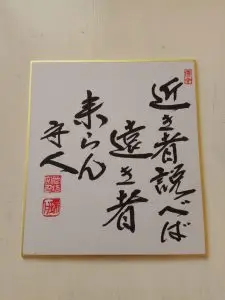 近き者説べば
遠き者
来らん
守人